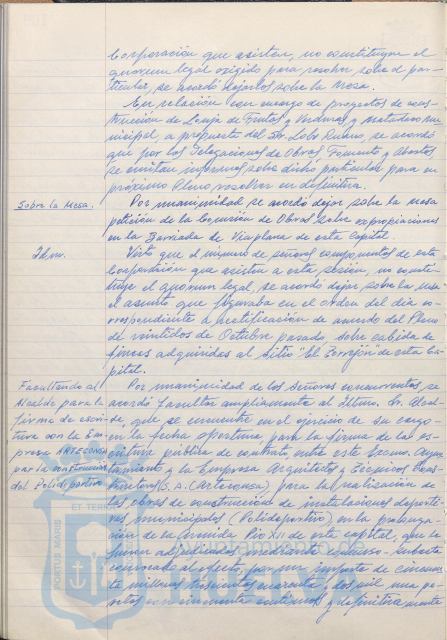 Corporación que asisten, no constituyen el
quorum legal exigido para resolver sobre el par-
ticular, se acordó dejarlos sobre la Mesa.
En relación con encargo de proyectos de cons-
trucción de Lonja de Frutas y Verduras y Matadero Mu-
nicipal, a propuesta del Sr. Lobo Rubio, se acordó
que por las Delegaciones de Obras, Fomento y Abastos
se emitan informes sobre dicho particular para en
próximo Pleno resolver en definitiva.
Sobre la Mesa.
Por unanimidad se acordó dejar sobre la mesa
petición de la Comisión de Obras sobre expropiaciones
en la Barriada de Viaplana de esta Capital.
Idem.
Visto que el número de señores componentes de esta
Corporación que asisten a esta sesión, no consti-
tuye el quorum legal, se acordó dejar sobre la mesa
el asunto que figuraba en el orden del día co-
rrespondiente a rectificación de acuerdo del Pleno
de veintidos de Octubre pasado sobre cabida de
fincas adquiridas al sitio "El Torrejón" de esta Ca-
pital.
Facultando al
Alcalde para la
firma de escri-
tura con la Em-
presa ARTECONSA
por la construcción
del Polideportivo
Por unanimidad de los Señores concurrentes se
acordó facultar ampliamente al Iltmo. Sr. Alcal-
de, que se encuentre en el ejercicio de su cargo
en la fecha oportuna, para la firma de la es-
critura pública de contrato, entre este Excmo. Ayun-
tamiento y la Empresa Arquitectos y Técnicos
S. A. (Arteconsa) para la realización de
las obras de construcción de instalaciones deporti-
vas municipales (Polideportivo) en la prolonga-
ción de la Avenida Pío XII de esta capital, que le
fueron adjudicadas mediante concurso-subasta
convocado al efecto, por un importe de cincuen-
ta millones seiscientas cuarenta y dos mil una pe-
setas y definitivamente
PORTUS MARIS
ET TERRAE